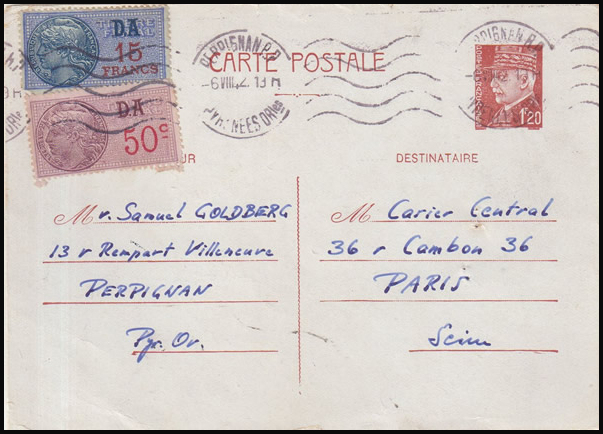 D.A
15
FRANCS
D.A
50c
PERPIGNAN R.P.
6 VIII 42 13 H
PYRENEES ORles
CARTE POSTALE
1F20
DESTINATAIRE
UR
Mr. Samuel GOLDBERG
13 r Rempart Villeneuve
PERPIGNAN
Pyr. Or.
M Carier Central
36 r Cambon 36
PARIS
Seine